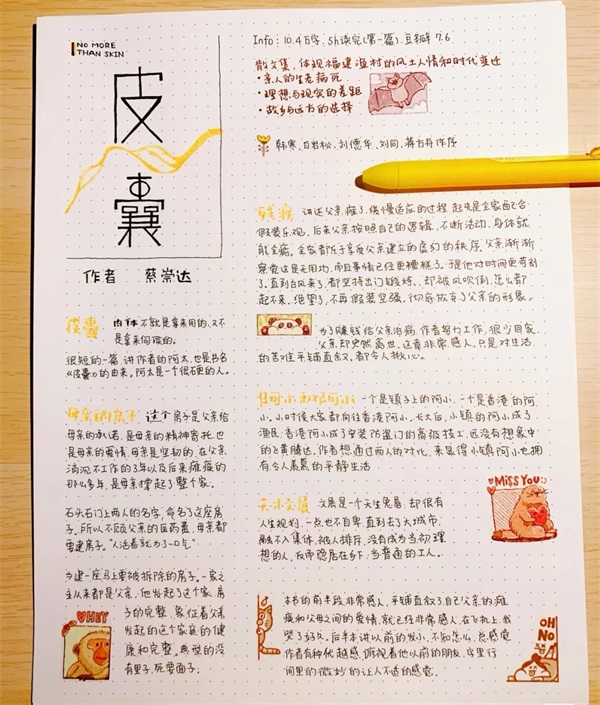 NO MORE
THAN SKIN
皮
囊
作者 蔡崇达
Info: 10.4万字, 5h读完(第一篇), 豆瓣 7.6
散文集, 体现福建渔村的风土人情和时代变迁
·亲人的生老病死
·理想与现实的差距
·故乡与远方的选择
韩寒、白岩松、刘德华、刘同、蒋方舟作序
皮囊 肉体不就是拿来用的, 又不
是拿来伺候的。
很短的一篇, 讲作者的阿太, 也是书名
《皮囊》的由来。阿太是一个很石更的人。
母亲的房子 这个房子是父亲给
母亲的承诺, 是母亲的精神寄托, 也
是母亲的爱情。母亲是坚韧的, 在父亲
消沉不工作的3年以及后来瘫痪的
那么多年, 是母亲撑起了整个家。
石头石门上两人的名字, 命名了这座房
子。所以不顾父亲的医药费, 母亲都
要建房子。"人活着就为了一口气"
会建一座马上要被拆除的房子。一家之
主从来都是父亲, 他发起了这个家, 房
子的完整, 象征着父亲
发起的这个家庭的健
康和完整。典型的没
有里子, 死要面子。
HEY
残疾 讲述父亲瘫了, 缓慢适应的过程。起先是全家配合
假装乐观, 后来父亲按照自己的逻辑, 不断活动, 身体就
能全痊。全家都乐于享受父亲建立的虚幻的秩序。父亲渐渐
察觉这是无用功, 而且事情已经更糟糕了。于是他对时间更苛刻
了。直到台风来了, 都坚持出门锻炼, 却被风吹倒, 怎么都
起不来。绝望了, 不再假装坚强, 彻底放弃了父亲的形象。
为了赚钱给父亲治病, 作者努力工作, 很少回家。
父亲却突然离世, 这章非常感人, 只是对生活
的苦难平铺直叙, 都令人揪心。
阿小和阿小 一个是镇子上的阿小, 一个是香港的阿
小。小时候大家都向往香港阿小, 长大后, 小镇的阿小成了
渔民, 香港阿小成了安装防盗门的高级技工, 远没有想象中
的飞黄腾达。作者想通过两人的对比, 来显得小镇阿小也拥
有令人羡慕的平静生活
MISS YOU:)
天才文展 文展是一个天生兔唇, 却很有
人生规划, 一点也不自卑, 直到去了大城市,
融不入集体, 被人排斥, 没有成为当初理
想的人, 反而隐居在乡下, 当普通的工人。
本书的前半段非常感人, 平铺直叙了自己父亲的瘫
痪和父母之间的爱情, 就已经非常感人, 在飞机上, 我
哭了好久。后半本讲以前的发小, 不知怎么, 总感觉
作者有种优越感, 俯视着他以前的朋友, 字里行
间里的微妙的让人不适的感觉。
OH
NO!